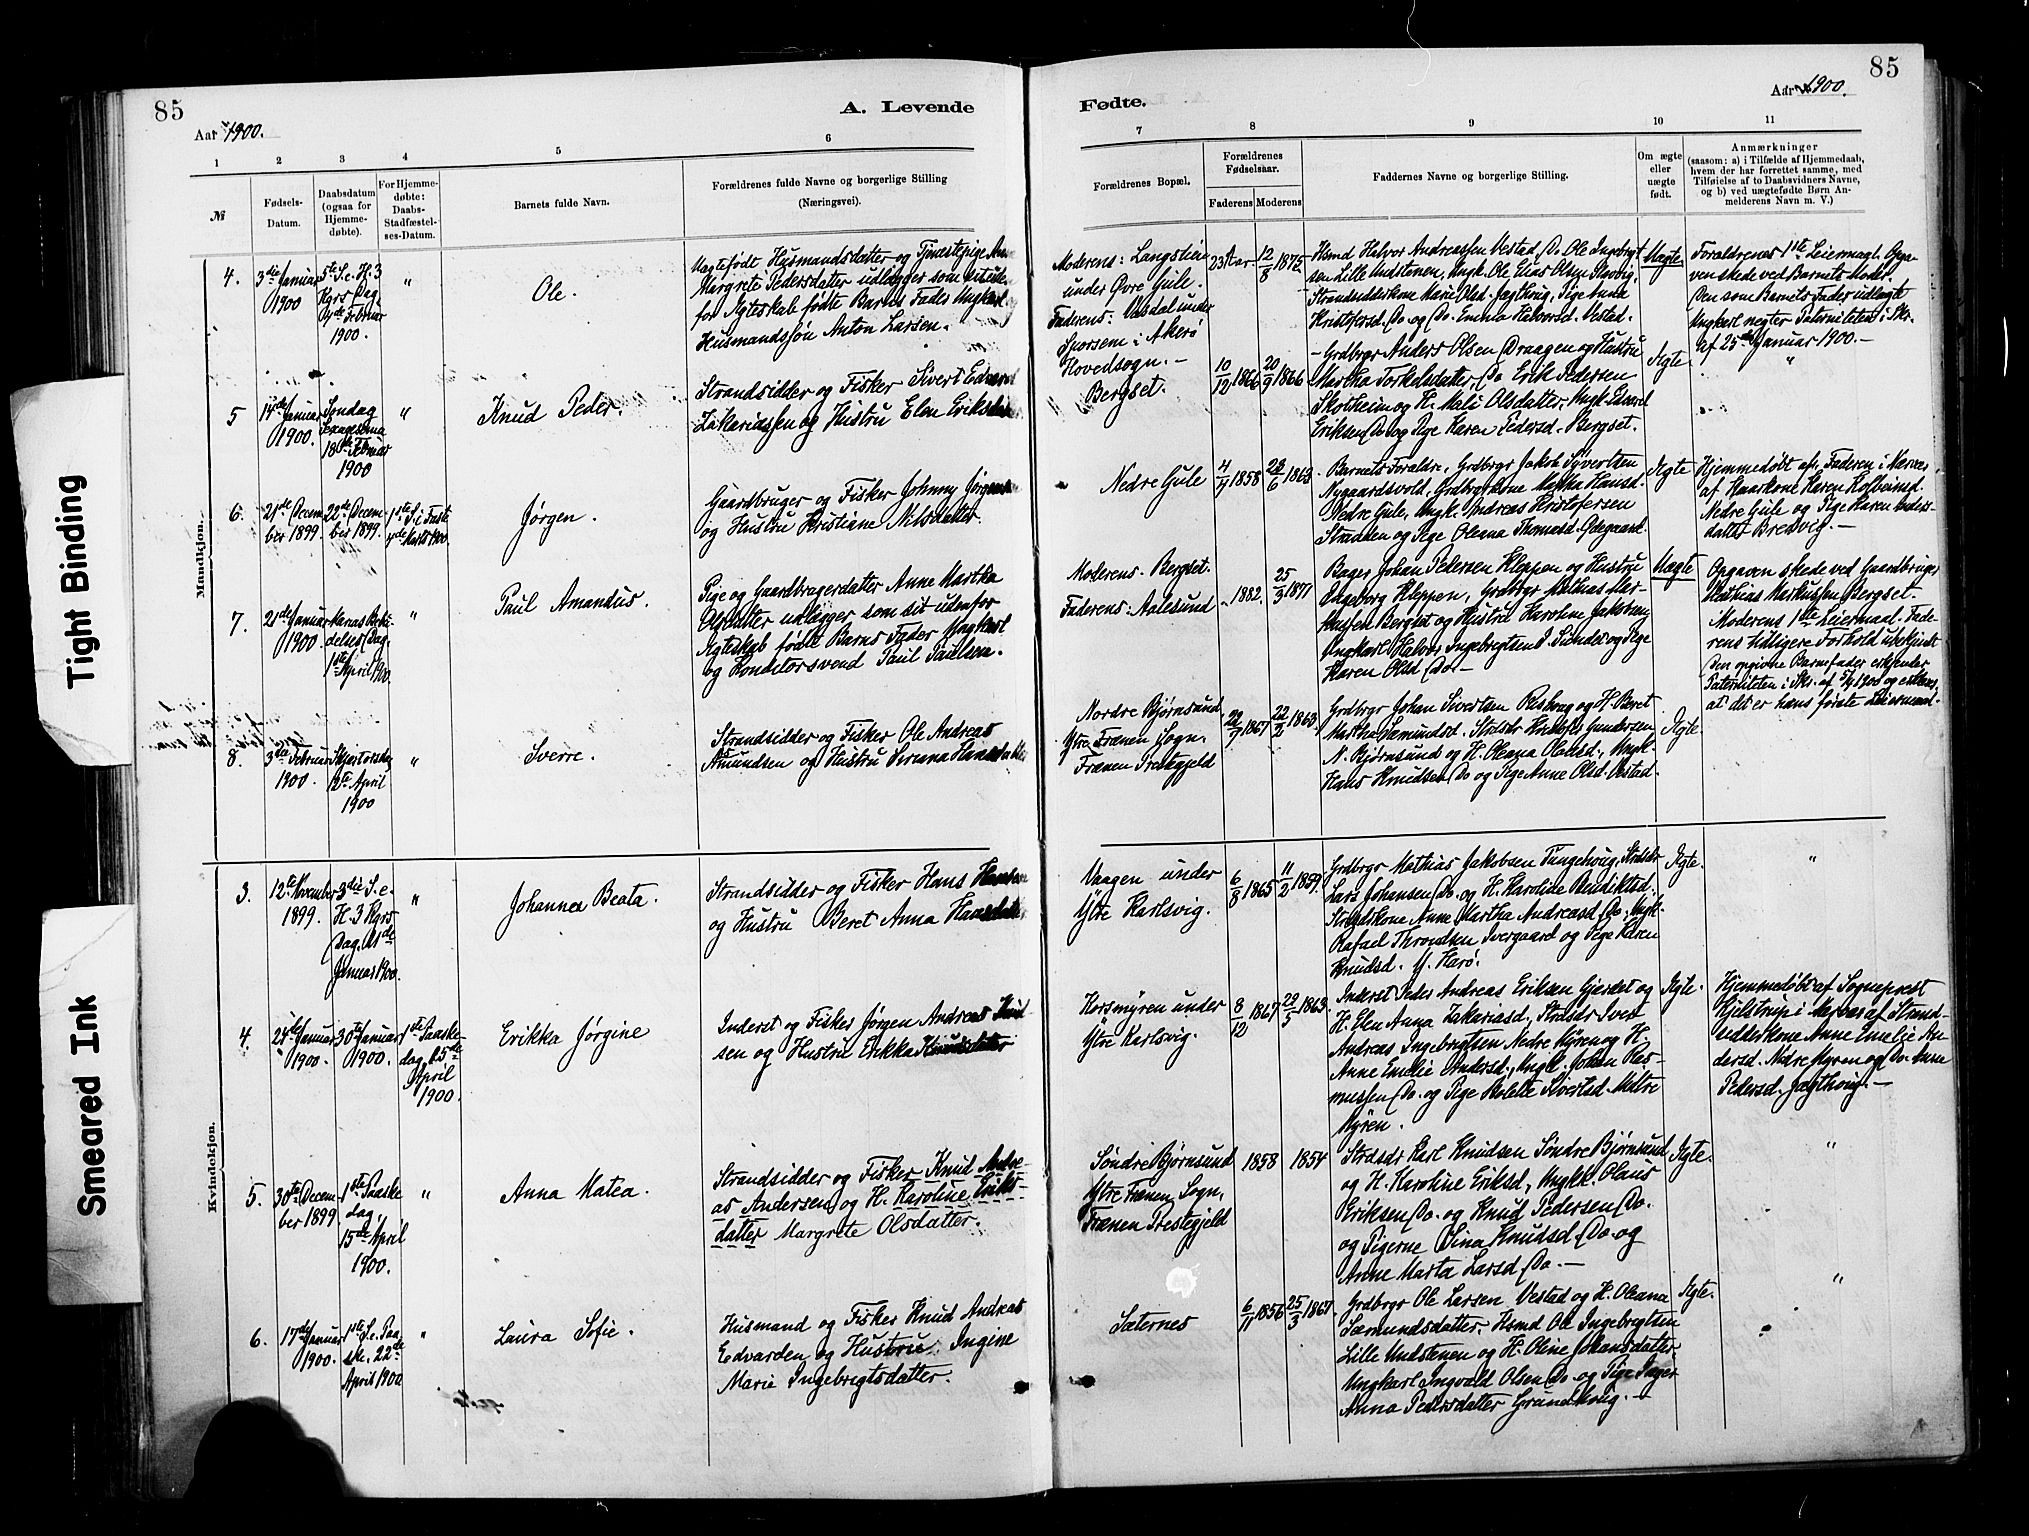 85
A. Levende
Aar 1900.
1
2
3
4
5
6
№
Fødsels-
Datum.
Daabsdatum
(ogsaa for
Hjemme-
døbte).
For Hjemme-
døbte:
Daabs-
Stadfæstel-
ses-Datum.
Barnets fulde Navn.
Forældrenes fulde Navne og borgerlige Stilling
(Næringsvei).
Mandkjøn.
4.
3die Januar
1900
5te S. e. H. 3
Kgrs Dag
4de Februar
1900.
"
Ole.
Uægtefødt Husmandsdatter og Tjenestepige
Margrete Pedersdatter udlægger som sit uden-
for Ægteskab fødte Barns Fader Ungkarl og
Husmandssøn Anton Larsen.
5
14de Januar
1900.
Søndag
Sexagesima
18de Februar
1900
"
Knud Peder.
Strandsidder og Fisker Sivert Edvard
Zakariassen og Hustru Elen Eriksdatter
6.
21de Decem-
ber 1899
22de Decem-
ber 1899.
1ste S. i Faste
4de Marts 1900.
Jørgen.
Gaardbruger og Fisker Johnny Jørgensen
og Hustru Kristiane Nilsdatter.
7.
21de Januar
1900.
Mariæ Bebu-
delses Dag.
1ste April 1900.
"
Paul Amandus.
Pige og Gaardbrugerdatter Anne Martha
Olsdatter udlægger som sit udenfor
Ægteskab fødte Barns Fader Ungkarl
og Konditorsvend Paul Paulsen.
8.
3die Februar
1900.
Skjærtorsdag
12te April
1900
"
Sverre.
Strandsidder og Fisker Ole Andreas
Amundsen og Hustru Siriana Hansdatter
Kvindekjøn.
3.
12te November
1899.
3die S. e.
H. 3 Kgrs
Dag. 21de
Januar 1900.
"
Johanna Beata.
Strandsidder og Fisker Hans Hansen
og Hustru Beret Anna Hansdatter
4.
28de Januar
1900.
30te Januar
1900.
1ste Paaske-
dag 15de
April
1900.
Erikka Jørgine
Inderst og Fisker Jørgen Andreas Knud-
sen og Hustru Erikka Knudsdatter
5.
30te Decem-
ber 1899.
1ste Paaske-
dag.
15de April
1900.
"
Anna Matea.
Strandsidder og Fisker Knud Andre-
as Andersen og H. Karoline Eriks-
datter Margrete Olsdatter.
6.
17de Januar
1900.
1ste S. e. Paa-
ske. 22de
April 1900
"
Laura Sofie.
Husmand og Fisker Knud Andreas
Edvardsen og Hustru Ingine
Marie Ingebrigtsdatter.
Fødte.
85
Aar 1900.
7
8
9
10
11
Forældrenes Bopæl.
Forældrenes
Fødselsaar.
Faderens
Moderens
Faddernes Navne og borgelige Stilling.
Om ægte
eller
uægte
født.
Anmærkninger
(saasom: a) i Tilfælde af Hjemmedaab,
hvem der har forrettet samme, med
Tilføielse af to Daabsvidners Navne,
og b) ved uægtefødte Børn An-
melderens Navn m. V.)
Moderens: Langstein
under Øvre Gule.
Faderens: Vasdal under
Sporsem i Akerø
Hovedsogn. –
23 Aar
12/8 1875
Hsmd Halvor Andreassen Vestad, Do Ole Ingebrigt-
sen Lille Undstenen, Ungk. Ole Elias Olsen
Strandsidderkone Marie Olsd. Jagthoug, Pige Anna
Kristofersd. Do og Do. Emma Halvorsd. Vestad.
Uægte
Forældrenes 1ste Leiermaal. Opga-
ven skede ved Barnets Moder.
Den som Barnets Fader udlagte
Ungkarl negter Paterniteten i Skr.
af 25de Januar 1900. –
Bergset.
10/12 1866
20/9 1866
Grdbrgr Anders Olsen Draagen og Hustru
Martha Torkelsdatter, Do Erik Pedersen
Skotheim og H. Mali Olsdatter, Ungk. Edvard
Eriksen Do og Pige Karen Pedersd. Bergset.
Ægte.
"
Nedre Gule
4/9 1858
23/6 1863
Barnets Forældre, Grdbrgr Jakob Syvertsen
Nygaardsvold, Grdbrgrkone Martha Hansd.
Nedre Gule, Ungk. Andreas Kristofersen
Stranden og Pige Oleana Thomasd. Ødegaard.
Ægte
Hjemmedøbt af Faderen i Nærvær
af Kaarkone Karen Kolbeinsd.
Nedre Gule og Pige Karen Anders-
datter Bredvig. –
Moderens. Bergset.
Faderens: Aalesund
1882.
25/3 1871
Bager Johan Pedersen Kleppen og Hustru
Ingeborg Kleppen, Grdbrgr Mathias Mar-
kussen Bergset og Hustru Karoline Jakobsd.
Ungkarl Halvor Ingebrigtsen Sundet og Pige
Karen Olsd Do. –
Uægte
Opgaven skede ved Gaardbruger
Mathias Markussen Bergset.
Moderens 1ste Leiermaal. Fade-
rens tidligere Forhold ubekjendt
Den opgivne Barnefader erkjender
Paterniteten i Skr. af 5/4 1900 og erklærer,
at det er hans første Leiermaal.
Nordre Bjørnsund
Ytre Frænen Sogn,
Frænen Prestegjeld
22/7 1867
22/2 1863
Grdbrgr Johan Sivertsen Rishoug og H. Beret
Martha Sæmundsd. Strdsdr Knud Gundersen
N. Bjørnsund og H. Oleana Olausd., Ungk.
Hans Knudsen Do og Pige Anne Olsd. Vestad.
Ægte.
Vaagen under
Ytre Karlsvig.
6/8 1865
11/2 1859.
Grdbrgr Mathias Jakobsen Tungehoug, Strdsdr
Lars Johansen Do. og H. Karoline Bendiktsd.
Strdsdrkone Anne Martha Andreasd. Do., Ungk.
Rafael Throndsen Ivergaard og Pige Karen
Knudsd. Y. Harø.
Ægte.
"
Korsmyren under
Ytre Karlsvig.
8/12 1867
29/5 1863.
Inderst Peder Andreas Eriksen Gjerdet og
H. Elen Anna Zakariasd, Strdsdr Iver
Andreas Ingebrigtsen Nedre Myren og H.
Anne Emelie Andersd., Ungk. Johan Ras-
mussen Do. og Pige Nikolette Sivertsd. Midtre
Myren.
Ægte.
Hjemmedøbt af Sogneprest
Hjelstrup i Nærvær af Strand-
sidderkone Anne Emelie An-
dersd. Nedre Myren og Do. Anne
Pedersd. Jagthoug. –
Søndre Bjørnsund
Ytre Frænen Sogn,
Frænen Prestegjeld
1858
1854
Strdsdr Karl Knudsen Søndre Bjørnsund
og H. Karoline Eriksd., Ungk. Olaus
Eriksen Do. og Knud Pedersen Do.
og Pigerne Sina Knudsd Do. og
Anne Marta Larsd Do. –
Ægte.
"
Sæternes
6/11 1856
25/3 1867.
Grdbrgr Ole Larsen Vestad og H. Oleana
Sæmundsdatter. Hsmd Ole Ingebrigtsen
Lille Undstenen og H. Oline Johansdatter,
Ungkarl Ingvald Olsen Do. og Pige Inger
Anna Pedersdatter Grundhoug. –
Ægte.
"
Tight Binding
Smeared Ink